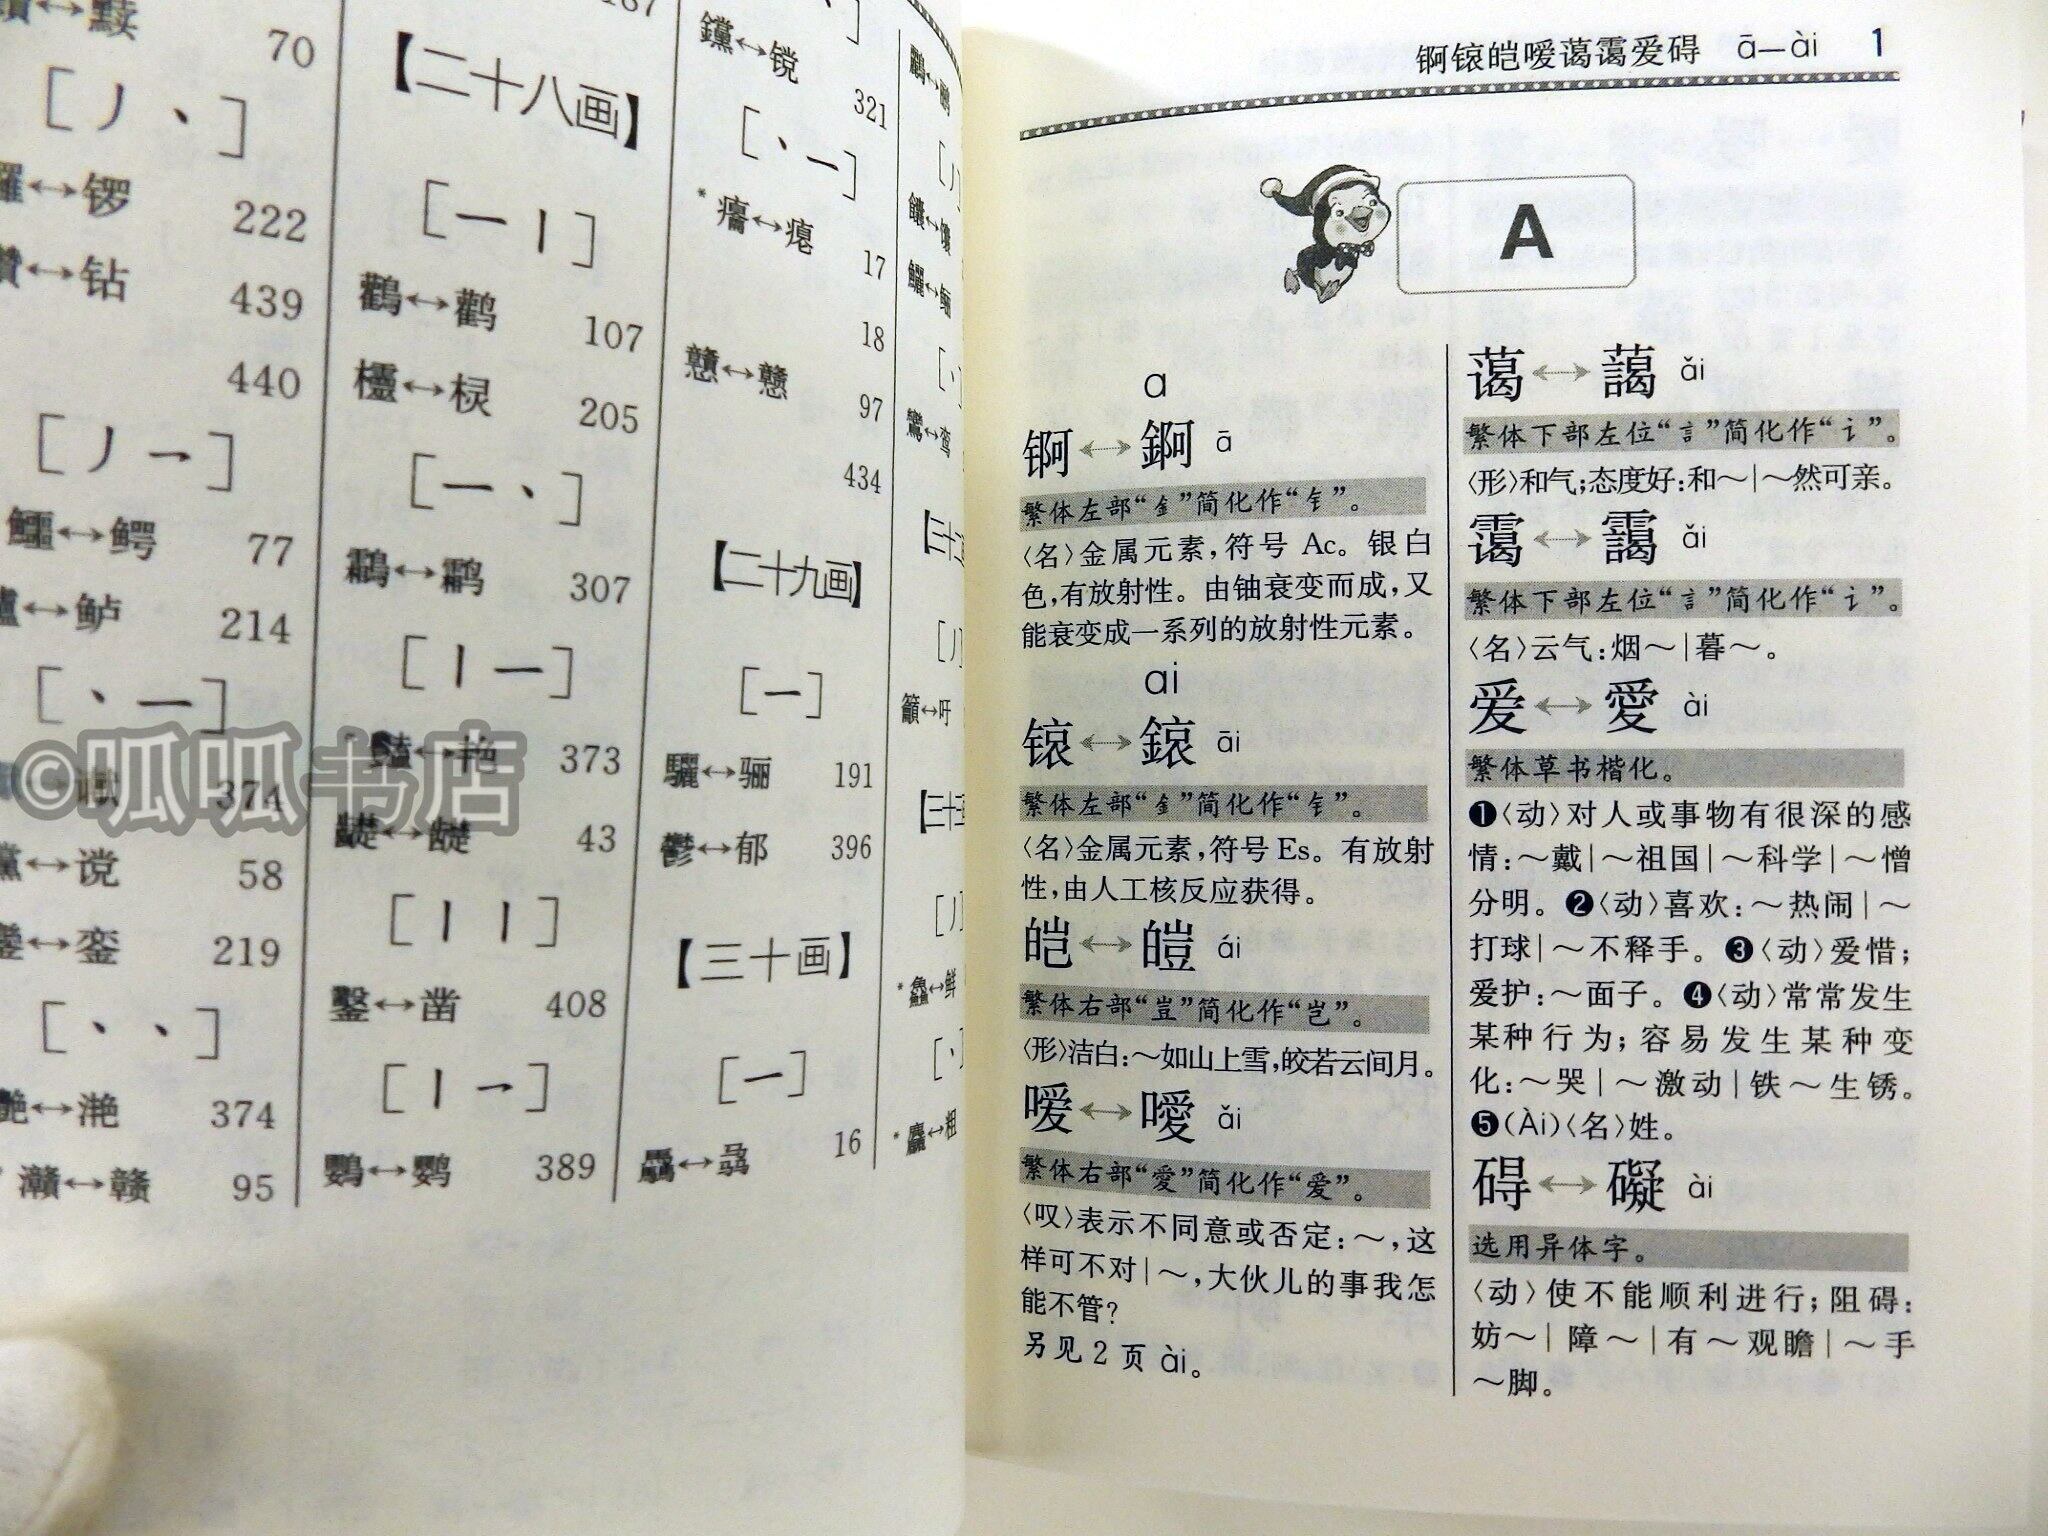 70
[丿丶]
↔锣 222
↔钻 439
440
[丿㇖]
鱷↔鳄 77
↔鲈 214
[丶一]
374
↔谠 58
↔銮 219
[丶丶]
↔滟 374
灨↔赣 95
【二十八画】
[一丨]
鸛↔鹳 107
欞↔棂 205
[一丶]
鸘↔鹴 307
[丨一]
豔↔艳 373
齼↔龊 43
[丨丨]
鑿↔凿 408
[丨㇖]
鸚↔鹦 389
钂↔镋 321
[丶一]
17
18
戇↔戆 97
434
【二十九画】
[一]
驪↔骊 191
鬱↔郁 396
【三十画】
[一]
驫↔骉 16
籲↔吁
*鱻↔鲜
*麤↔粗
©呱呱书店
锕锿皑嗳蔼霭爱碍 ā—ài 1
A
a
锕↔錒 ā
繁体左部“釒”简化作“钅”。
〈名〉金属元素,符号 Ac。银白
色,有放射性。由铀衰变而成,又
能衰变成一系列的放射性元素。
ai
锿↔鎄 āi
繁体左部“釒”简化作“钅”。
〈名〉金属元素,符号 Es。有放射
性,由人工核反应获得。
皑↔皚 ái
繁体右部“豈”简化作“岂”。
〈形〉洁白:～如山上雪,皎若云间月。
嗳↔噯 ǎi
繁体右部“愛”简化作“爱”。
〈叹〉表示不同意或否定:～,这
样可不对|～,大伙儿的事我怎
能不管?
另见 2 页 ài。
蔼↔藹 ǎi
繁体下部左位“訁”简化作“讠”。
〈形〉和气;态度好:和～|～然可亲。
霭↔靄 ǎi
繁体下部左位“訁”简化作“讠”。
〈名〉云气:烟～|暮～。
爱↔愛 ài
繁体草书楷化。
❶〈动〉对人或事物有很深的感
情:～戴|～祖国|～科学|～憎
分明。❷〈动〉喜欢:～热闹|～
打球|～不释手。❸〈动〉爱惜;
爱护:～面子。❹〈动〉常常发生
某种行为;容易发生某种变
化:～哭|～激动|铁～生锈。
❺(Ài)〈名〉姓。
碍↔礙 ài
选用异体字。
〈动〉使不能顺利进行;阻碍:
妨～|障～|有～观瞻|～手
～脚。